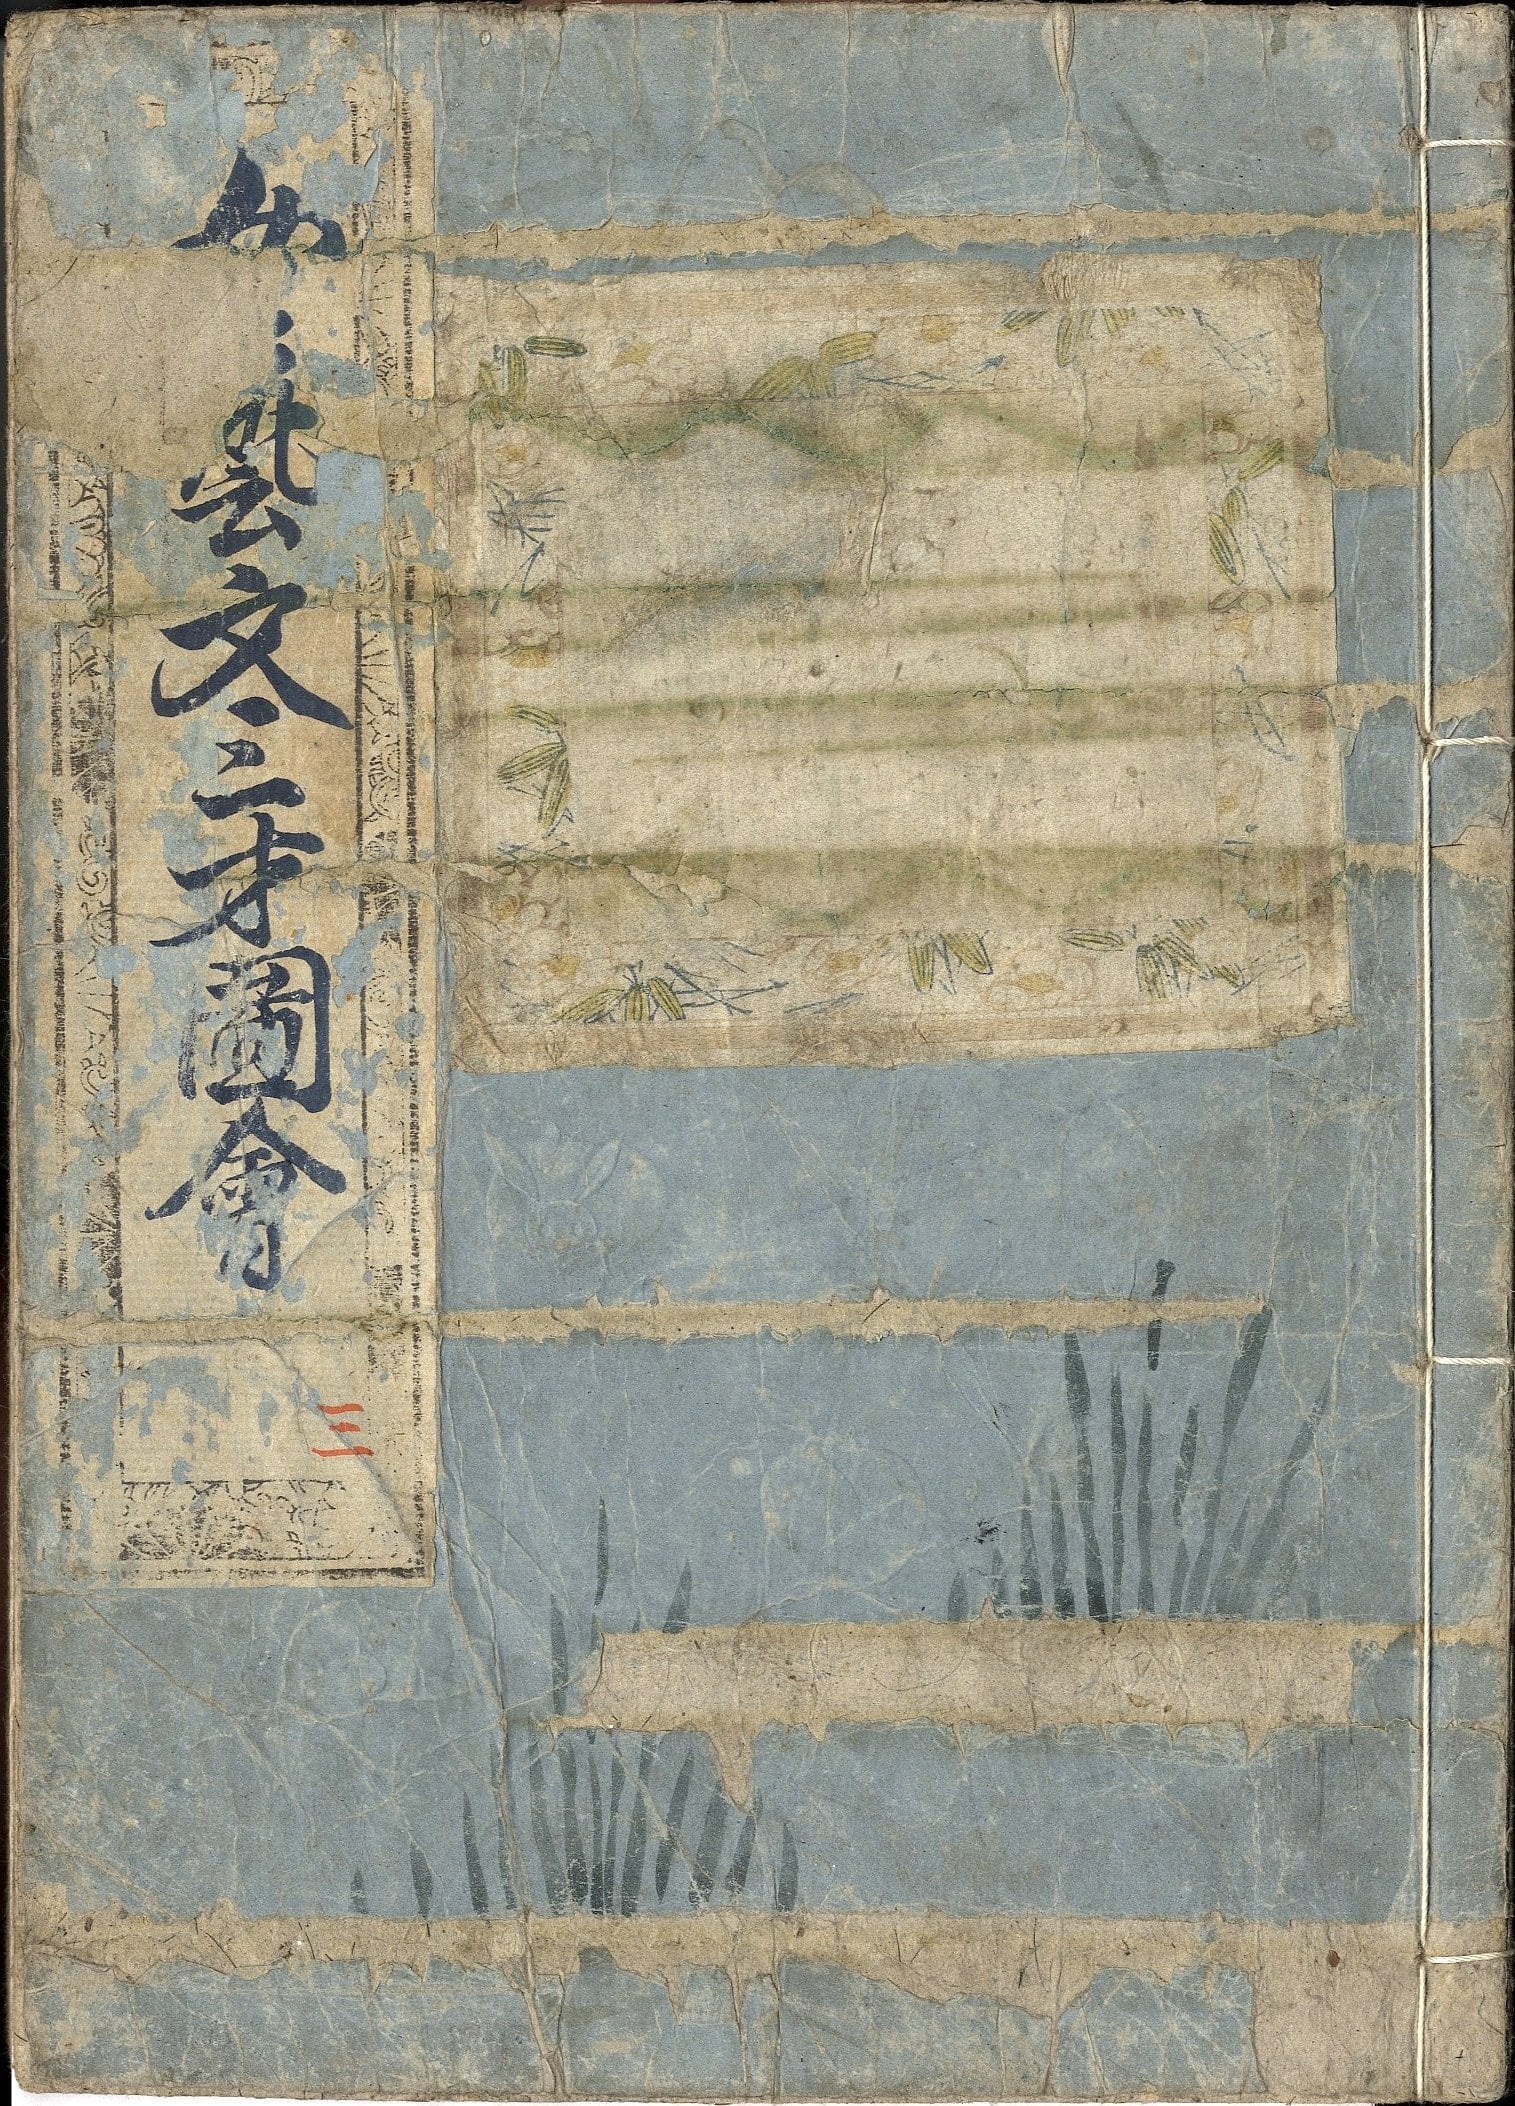 女
藝文三才圖會
三